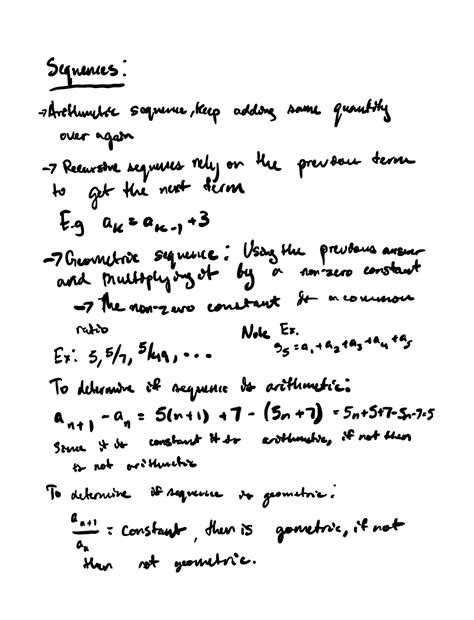 Sequences:
→Arithmetic sequence, keep adding same quantity
over again
→ Recursive sequences rely on the previous term
to get the next term
E.g aₖ = aₖ₋₁ +3
→Geometric sequence: Using the previous answer
and multiplying it by a non-zero constant
→ The non-zero constant is a common
ratio
Note Ex.
S₅ = a₁ + a₂ + a₃ + a₄ + a₅
Ex: 5, 5/7, 5/49, ...
To determine if sequence is arithmetic:
aₙ₊₁ - aₙ = 5(n+1) +7 - (5n+7) = 5n+5+7-5n-7=5
Since it is constant it is arithmetic, if not then
is not arithmetic
To determine if sequence is geometric:
aₙ₊₁/aₙ = constant, then is geometric, if not
then not geometric.